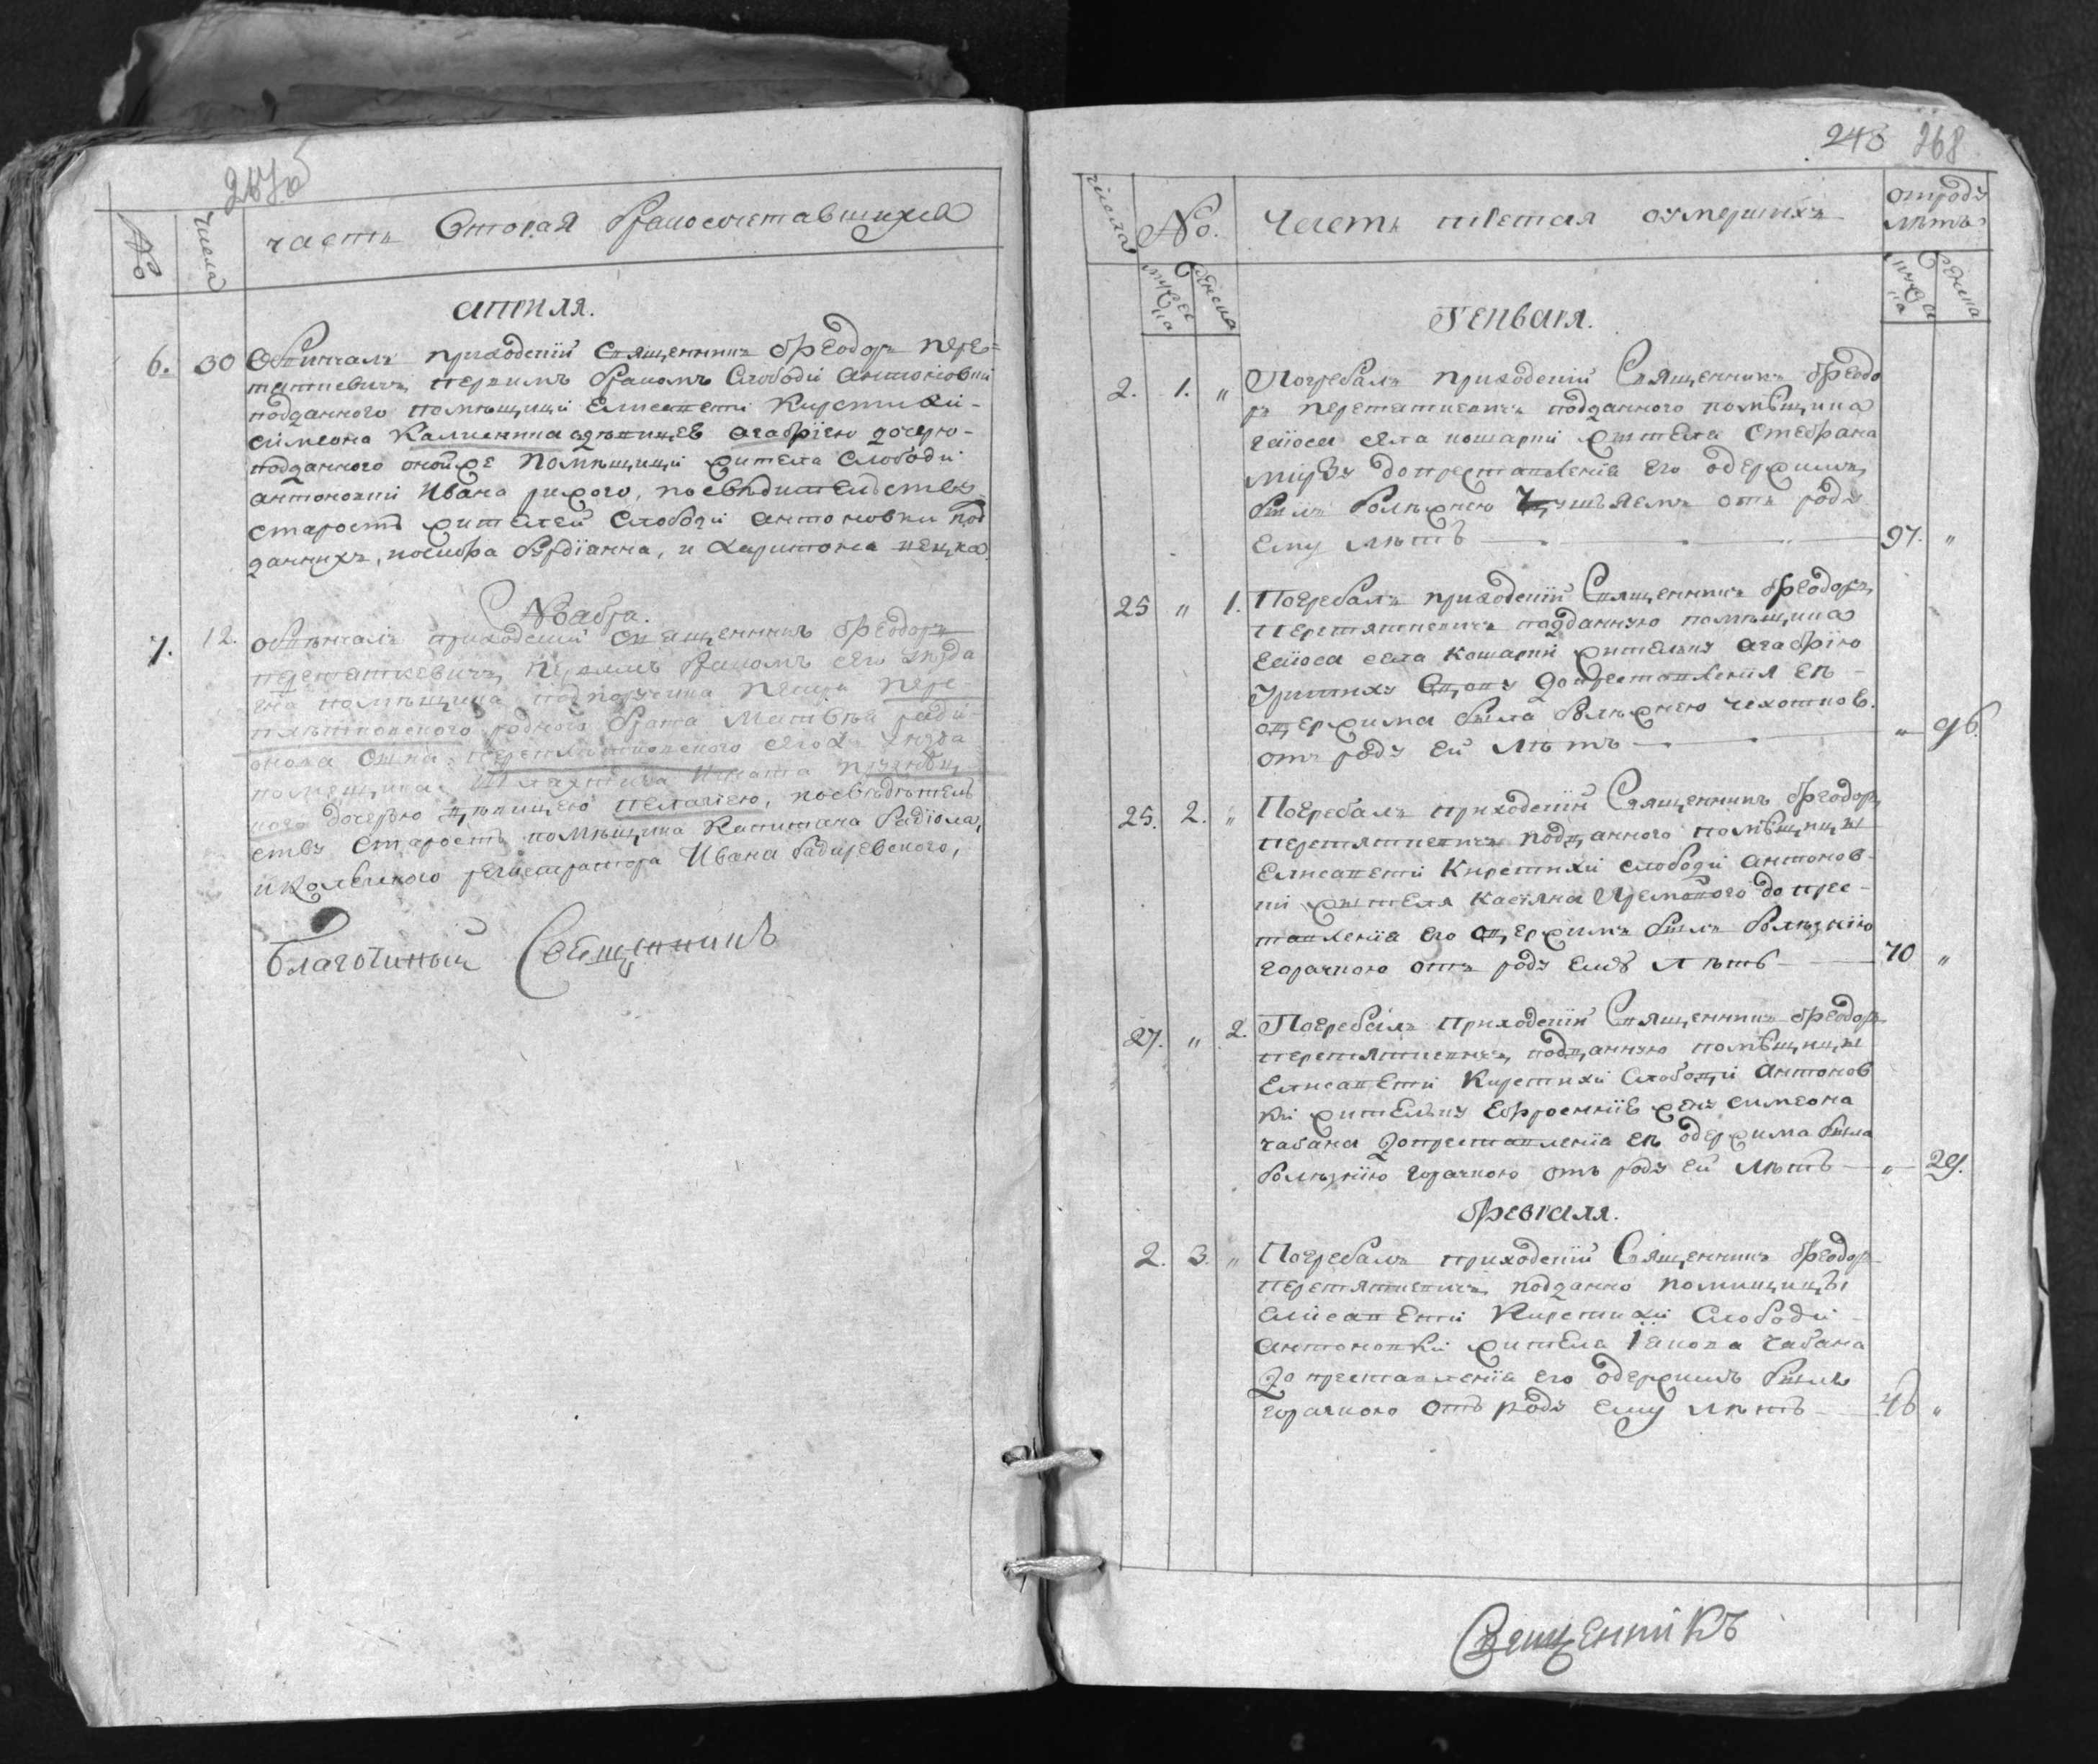 267об
№ числа часть вторая браносочетавшихся
априля.
6. 30 Обвинчалъ приходскій священникъ Феодоръ Пере-
таткевичъ первимъ бракомъ слободи Антоновки
подданного помѣщици Елисавети Кирстихи
Симеона Калиенина здѣвицею Агафіею дочерю
подданного онойже помѣщици жителя слободи
Антоновки Ивана рижого, посвѣдителству
старостъ жителей слободи Антоновки под
даннихъ, Иосифа Бурдіанна, и Харитона
Ноября.
7. 12. обвѣнчалъ приходский священникъ Феодоръ
Перетаткевичъ, первимъ бракомъ сего уѣзда
помѣщика подпоручика Петра Пере-
тятковского родного брата Матвѣя ради
онова сына Перетятковского сего уезда
помещика Игната
ного дочерью дѣвицею Пелагіею, посвѣдѣтель
ству старостъ помѣщика Капитана Радіона,
и колежкого регистратора Ивана
Благочиный Священникъ
248 268
числа №. Часть третая умершихъ от роду лѣтъ
мужеска женска мужеска женска
Генваря.
2. 1. " Погребалъ приходскій Священникъ Феодо
ръ Перетаткевичъ подданного помѣщика
Гаіоса села Кошарки жителя Стефана
до преставленія его одержимъ
билъ болѣзнею от роду
ему лѣтъ 97. "
25 " 1. Погребалъ приходскій Священникъ Феодоръ
Перетяткевичъ подданную помѣщика
Гаіоса села Кошарки жителку Агафію
вдову до преставленія ея
одержима была болѣзнею чехоткое.
отъ роду ей лѣтъ " 96.
25. 2. " Погребалъ приходскій Священникъ Феодоръ
Перетяткевичъ подданного помѣщицы
Елисавети Кирстихи слободи Антонов-
ки жителя Касіяна до прес-
тавленія его одержимъ былъ болѣзнію
горячкою отъ роду ему лѣтъ 70 "
27. " 2. Погребалъ приходскій Священникъ Феодоръ
Перетяткевичъ, подданную помѣщицы
Елисавети Кирстихи слободи Антонов
ки жителку Ефросинію жену Симеона
чабана до преставленія ея одержима была
болѣзнію горячкою отъ роду ей лѣтъ " 29.
Февраля.
2. 3. " Погребалъ приходскій Священникъ Феодоръ
Перетяткевичъ подданно помищицы
Елисавети Кирстихи Слободи
Антоновки жителя Іакова чабана
до преставленія его одержимъ былъ
горячкою отъ роду ему лѣтъ 46 "
Священникъ